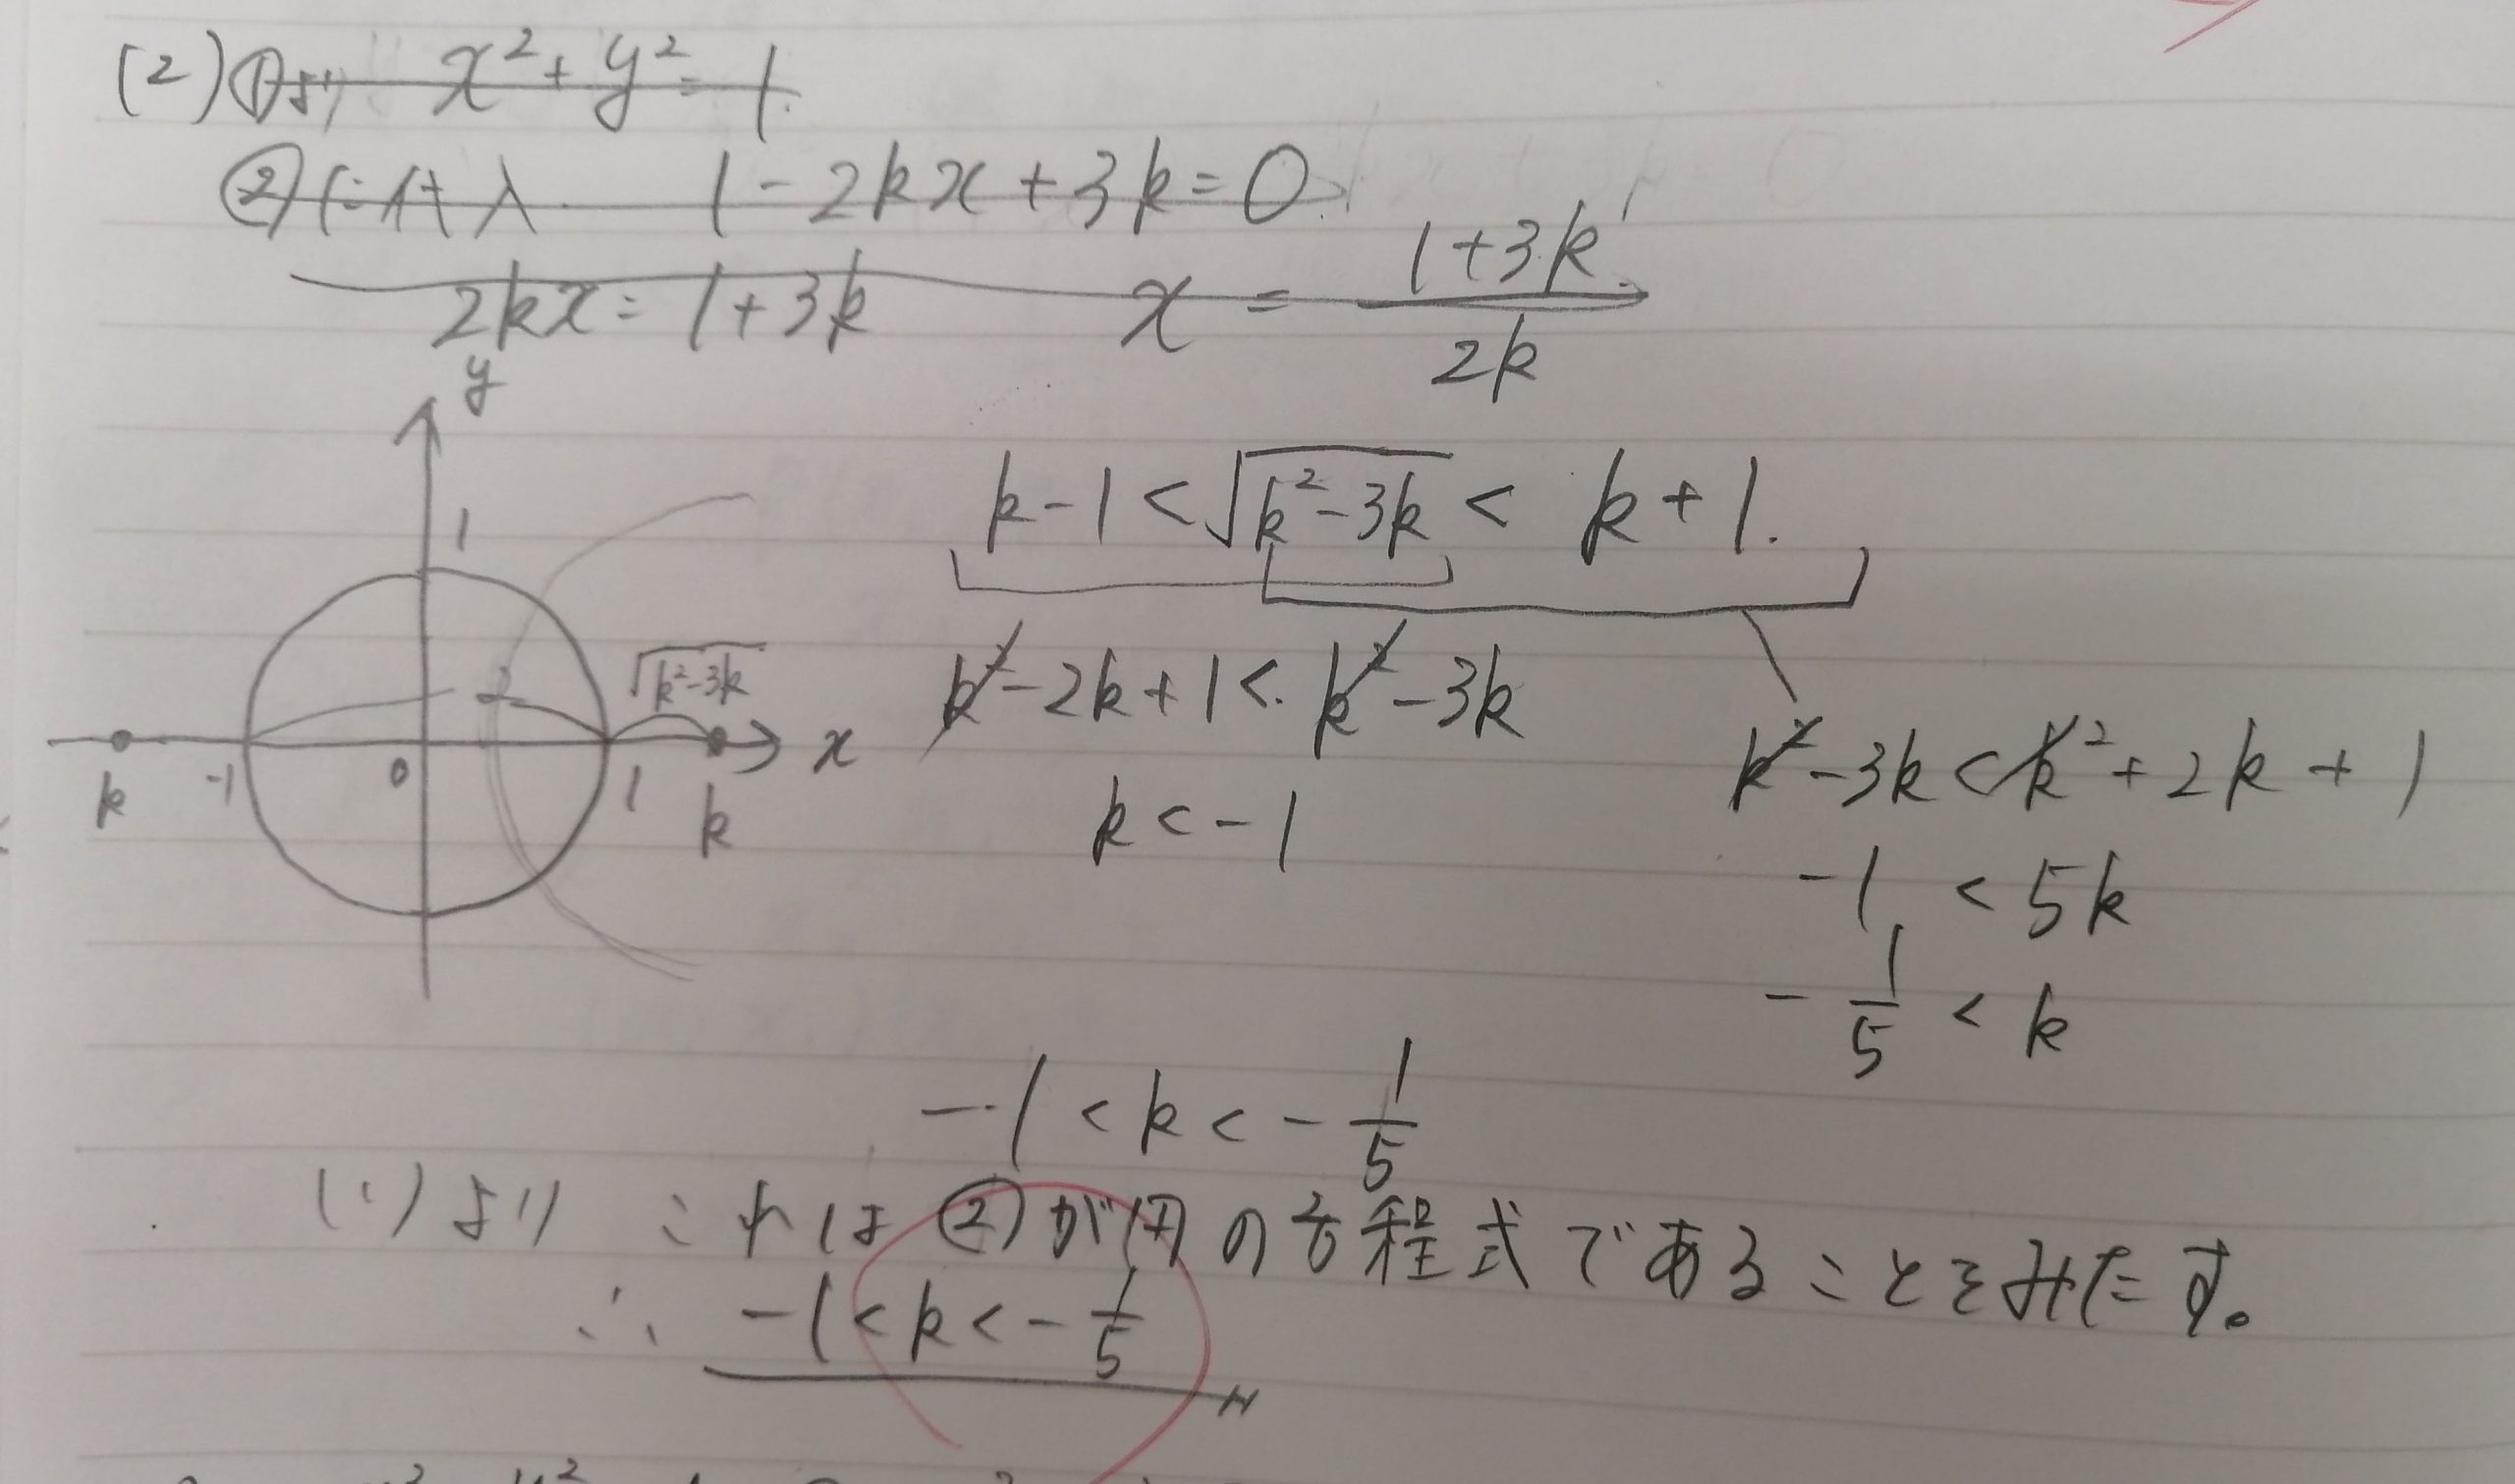 (2) ①より x²+y²=1.
②に代入. 1-2kx+3k=0.
2kx=1+3k x=\frac{1+3k}{2k}
y
k-1<\sqrt{k²-3k}<k+1.
1
\sqrt{k²-3k}
k²-2k+1<k²-3k
k -1 0 1 k x
k²-3k<k²+2k+1
k<-1
-1<5k
-\frac{1}{5}<k
-1<k<-\frac{1}{5}
(1)より これは②が円の方程式であることをみたす。
∴ -1<k<-\frac{1}{5}